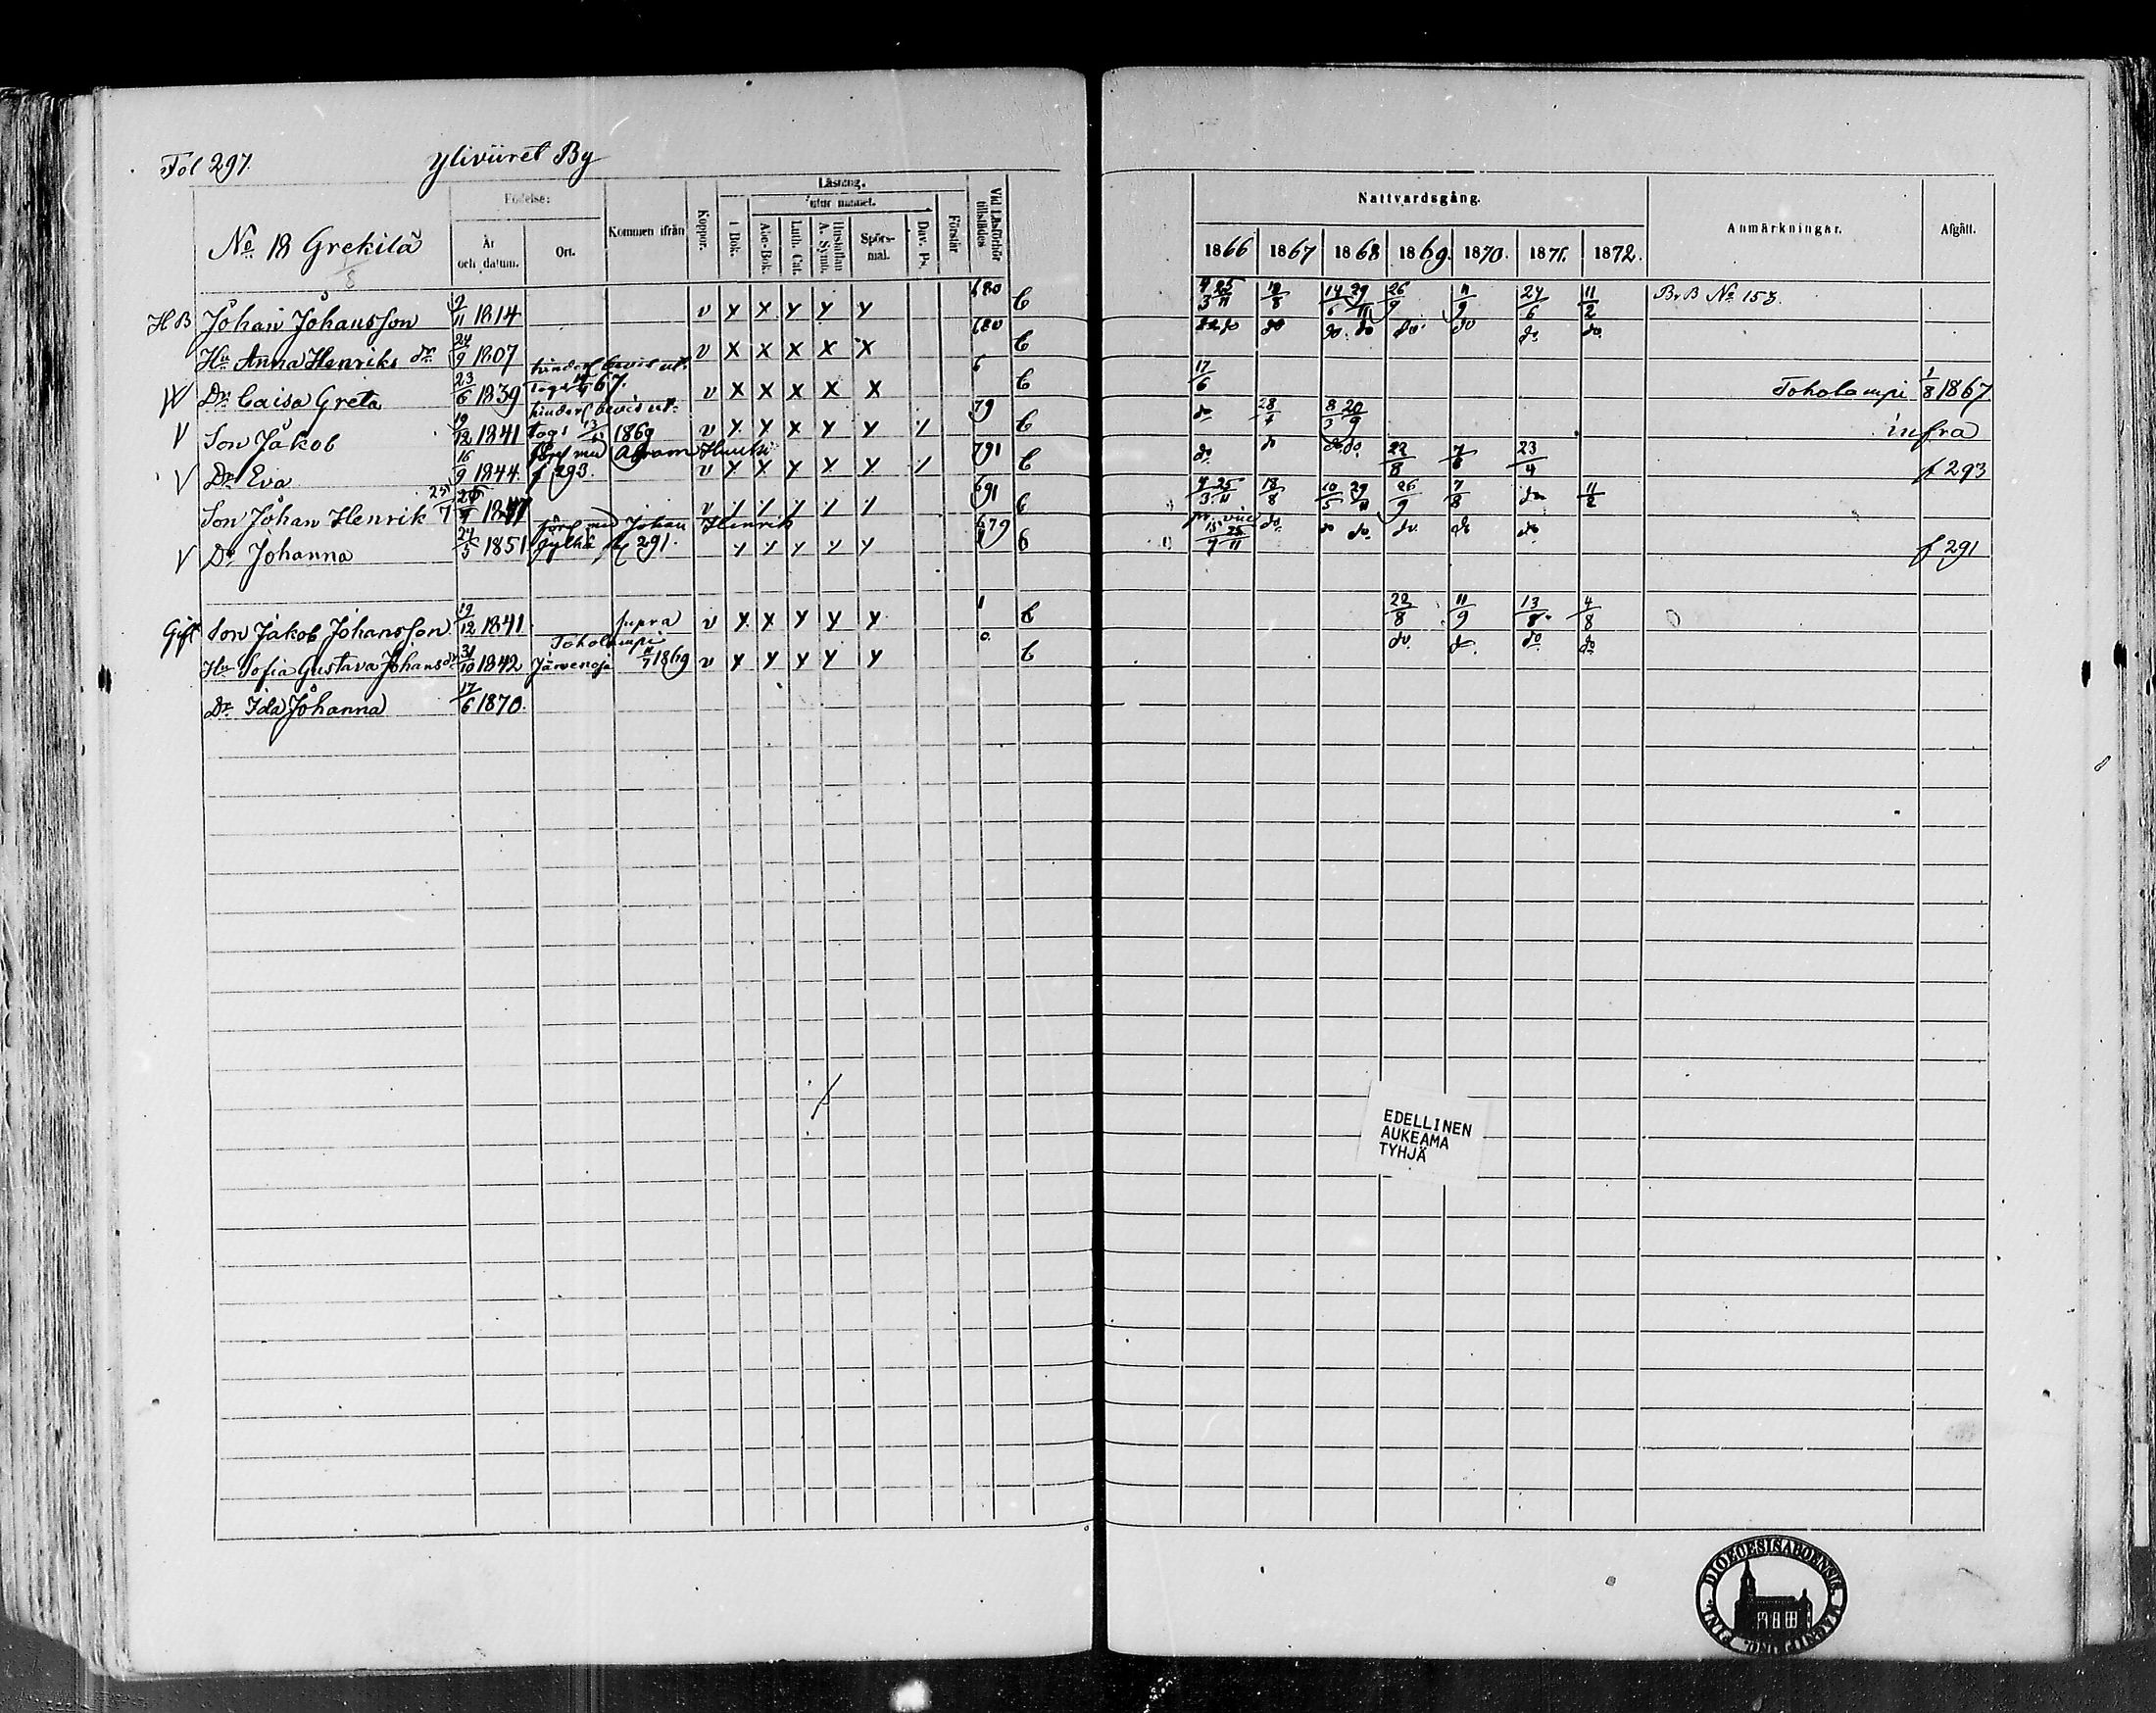 Fol 297. Ylivüret By
Födelse: Läsning. Nattvardsgång.
utur minnet.
No 18 Grekilä År och datum. Ort. Kommen ifrån Koppor. i Bok. Abc-Bok. Luth. Cat. Hustaflan A. Symb. Spörsmål. Dav. Ps. Förstår Vid Läsförhör tillstädes 1866 1867 1868 1869. 1870. 1871. 1872. Anmärkningar. Afgått.
1/8
HB Johan Johansson 9/11 1814 v y x y y y 680 C 4/3 25/11 18/8 14/6 29/11 26/9 11/9 24/6 11/2 BrB No 153.
Hu Anna Henriks dr 24/9 1807 v x x x x x 680 C do do do. do do. do do. do.
hinderl bevis ut-
Dr Caisa Greta 23/6 1839 togs 67. v x x x x x 6 C 17/6 Toholampi 1/8 1867
hinderl bevis ut-
V Son Jakob 19/12 1841 togs 13/6 1869 v y x x y y / 79 C do 28/4 8/3 20/9 infra
förl med Abram Henriks
V Dr Eva 16/9 1844. f 293. v y x y y y / 791 C do do do. do. 22/8 7/8 23/4 f 293
Son Johan Henrik 25/7 1847 v / / / / / 691 C 4/3 25/11 18/8 10/5 29/11 26/9 7/8 do 11/2
förl med Johan Henrik
V Dr Johanna 24/5 1851 Jylhä f 291. y y y y y 679 C 15/7 25/11 do. do do. do. do do f 291
Gift Son Jakob Johansson 19/12 1841 supra v y x y y y 1 C 22/8 11/9 13/8. 4/8
Toholampi
Hu Sofia Gustava Johansdr 31/10 1842 Järvenoja 11/7 1869 v y y y y y 0. C do. do. do do
Dr Ida Johanna 17/6 1870.
EDELLINEN
AUKEAMA
TYHJÄ
DIOECESIS ABOENSIS